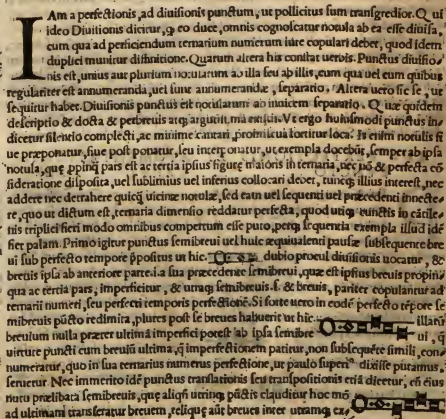 IAm a perfectionis, ad diuisionis punctum, ut pollicitus sum transgredior. Q ui
ideo Diuitionis dicitur, q̃ eo duce, omnis cognoscatur notula ab ea esse diuisa,
cum qua ad perficiendum ternarium numerum iure copulari debet, quod idem
duplici munitur diffinitione. Quarum altera his constat uerbis. Punctus diuisio/
nis est, unius aut plurium notularum ab illa seu ab illis, cum qua uel cum quibus
regulariter est annumeranda, uel sunt annumerandæ, separatio. Altera uero sic se, ut
sequitur habet. Diuisionis punctus est notularum ab inuicem separatio. Q uæ quidem
descriptio & docta & perbreuis atq; arguta, ma Vt ergo huiusmodi punctus in/
dicetur silentio complecti, ac minime cantari, pronuncia sortitur loca. Is enim notulis si
ue præponatur, siue post ponatur, seu interponatur, ut exempla docebũt, semper ab ipsa
notula, quę ppinq; pars est ac tertia ipsius figuræ maioris in ternaria, nec nõ & perfecta cõ
sideratione disposita, uel sublimius uel inferius collocari debet, tuncq; illius interest, nec
addere nec detrahere quicq; uicinæ notulæ, sed eam uel sequenti uel præcedenti innecte/
re, quo ut dictum est, ternaria dimensio reddatur perfecta, quod utiq; cunctis in cãtile/
nis triplici fieri modo omnibus compertum esse puto, perq; sequentia exempla illud id
fiet palam. Primo igitur punctus semibreui uel huic æquiualenti pausæ subsequente bre
ui sub perfecto tempore ppositus ut hic. dubio procul diuisionis uocatur, &
breuis ipsa ab anteriore parte .i. a sua præcedente semibreui, quæ est ipsius breuis propin/
qua ac tertia pars, imperficitur, & utraq; semibreuis .s. & breuis, pariter copulantur ad
ternarii numeri, seu perfecti temporis perfectionẽ. Si forte uero in eodẽ perfecto tẽpore se
mibreuis pũcto redimita, plures post se breues habuerit ut hic. illarũ
breuium nulla præter ultimã imperfici potest ab ipsa semibre ui, q
uirtute puncti cum breuiũ ultima, q̃ imperfectionem patitur, non subsequẽte simili, con/
numeratur, quo in sua ternarius numerus perfectione, ut paulo superi⁹ dixisse putamus,
seruetur. Nec immerito idẽ punctus translationis seu transpositionis etiã dicetur, cũ eius
nutu prælibata semibreuis, quæ aliqñ utrinq; pũctis clauditur hoc mõ
ad ultimam transferatur breuem, reliquę aũt breues inter utramq;